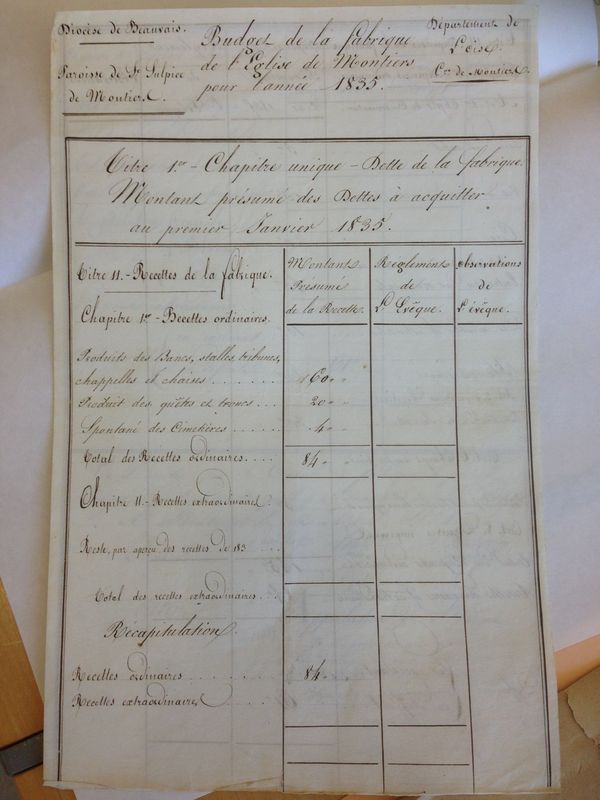 Diocèse de Beauvais.
Paroisse de St Sulpice
de Montiers.
Budget de la fabrique
de l'Eglise de Montiers
pour l'année 1835.
Département de
l'Oise.
Cne de Montiers.
Titre 1er - Chapitre unique - Dette de la fabrique.
Montant présumé des Dettes à acquitter
au premier Janvier 1835.
Titre 11. - Recettes de la fabrique.
Chapitre 1er - Recettes ordinaires.
Montant
Présumé
de la Recette.
Reglement
de
L'Evêque.
Observations
de
l'évêque.
Produits des Bancs, stalles, tribunes,
chappelles et chaises . . . . . . 60 " "
Produit des quêtes et troncs . . . 20 " "
Spontané des Cimetières . . . . 4 "
Total des Recettes ordinaires . . . . 84 "
Chapitre 11. - Recettes extraordinaires.
Reste, par aperçu des recettes de 183 . . .
Total des recettes extraordinaires . . .
Récapitulation.
Recettes ordinaires . . . . . . . . . 84 "
Recettes extraordinaires . . . . . . .